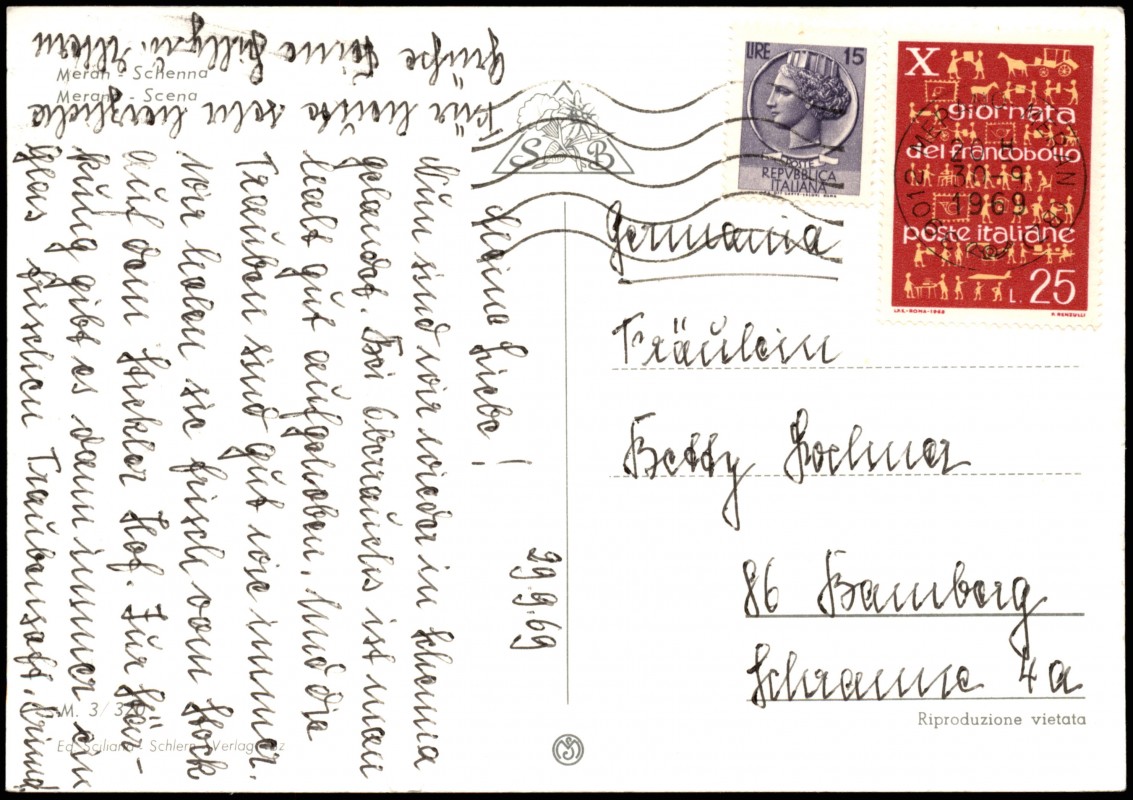 Meran - Schenna
Meran - Scena
S B
LIRE 15
POSTE
REPVBBLICA
ITALIANA
X
giornata
del francobollo
poste italiane
L. 25
I.P.S.-ROMA-1968
R. RENZULLI
39012 MERAN
30-9
1969
29.9.69
Meine Liebe!
Nun sind wir wieder in Schenna
gelandet. Bei Oberrauchs ist man
recht gut aufgehoben. Und die
Trauben sind gut wie immer.
Wir holen sie frisch vom Stock
auf dem Stickler Hof. Zur Stär-
kung gibt es dann immer ein
Glas frischen Traubensaft.
Für heute sehr herzliche
Grüße Deine Eltern
Germania
Fräulein
Betty
86 Bamberg
Schranne 4a
M. 3/320
Ed. Sciliana - Schlern Verlag
Riproduzione vietata